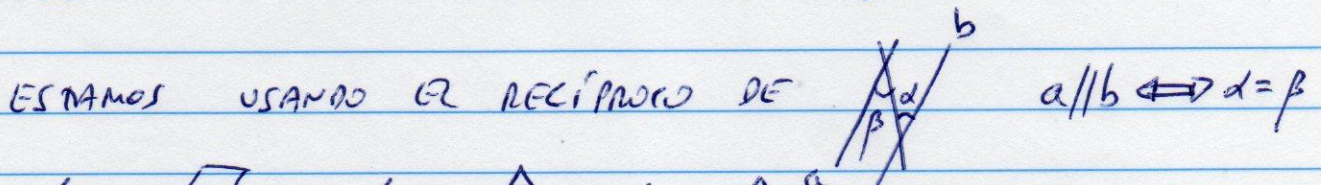 ESTAMOS USANDO EL RECÍPROCO DE a β α b a//b ⟺ α = β